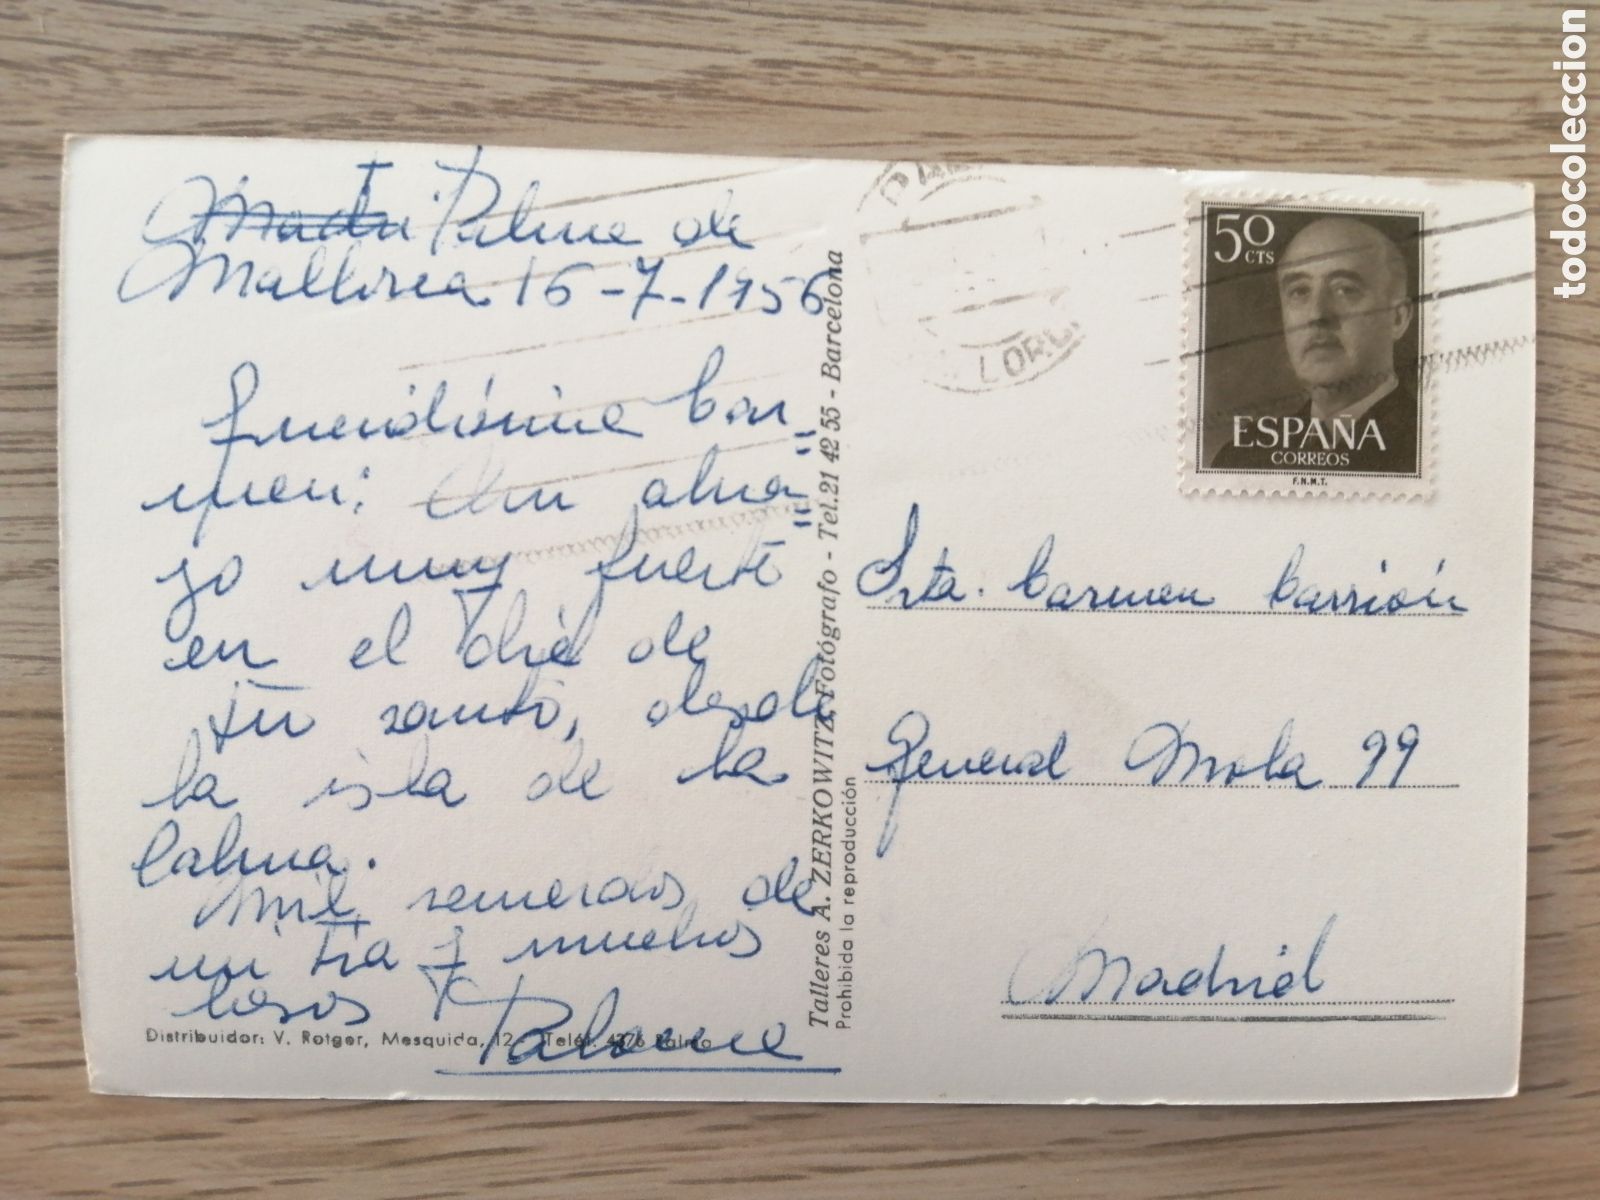 Palma de
Mallorca 16-7-1956
Queridísima Car=
men: Un abra=
zo muy fuerte
en el día de
tu santo, desde
la isla de la
Calma.
Mil recuerdos de
mi tía y muchos
besos
Paloma
Distribuidor: V. Rotger, Mesquida, 12 - Teléf. 4376 Palma
Talleres A. ZERKOWITZ, Fotógrafo - Tel. 21 42 55 - Barcelona
Prohibida la reproducción
LORC
50
CTS
ESPAÑA
CORREOS
F.N.M.T.
Srta. Carmen Carrión
General Mola 99
Madrid
todocoleccion